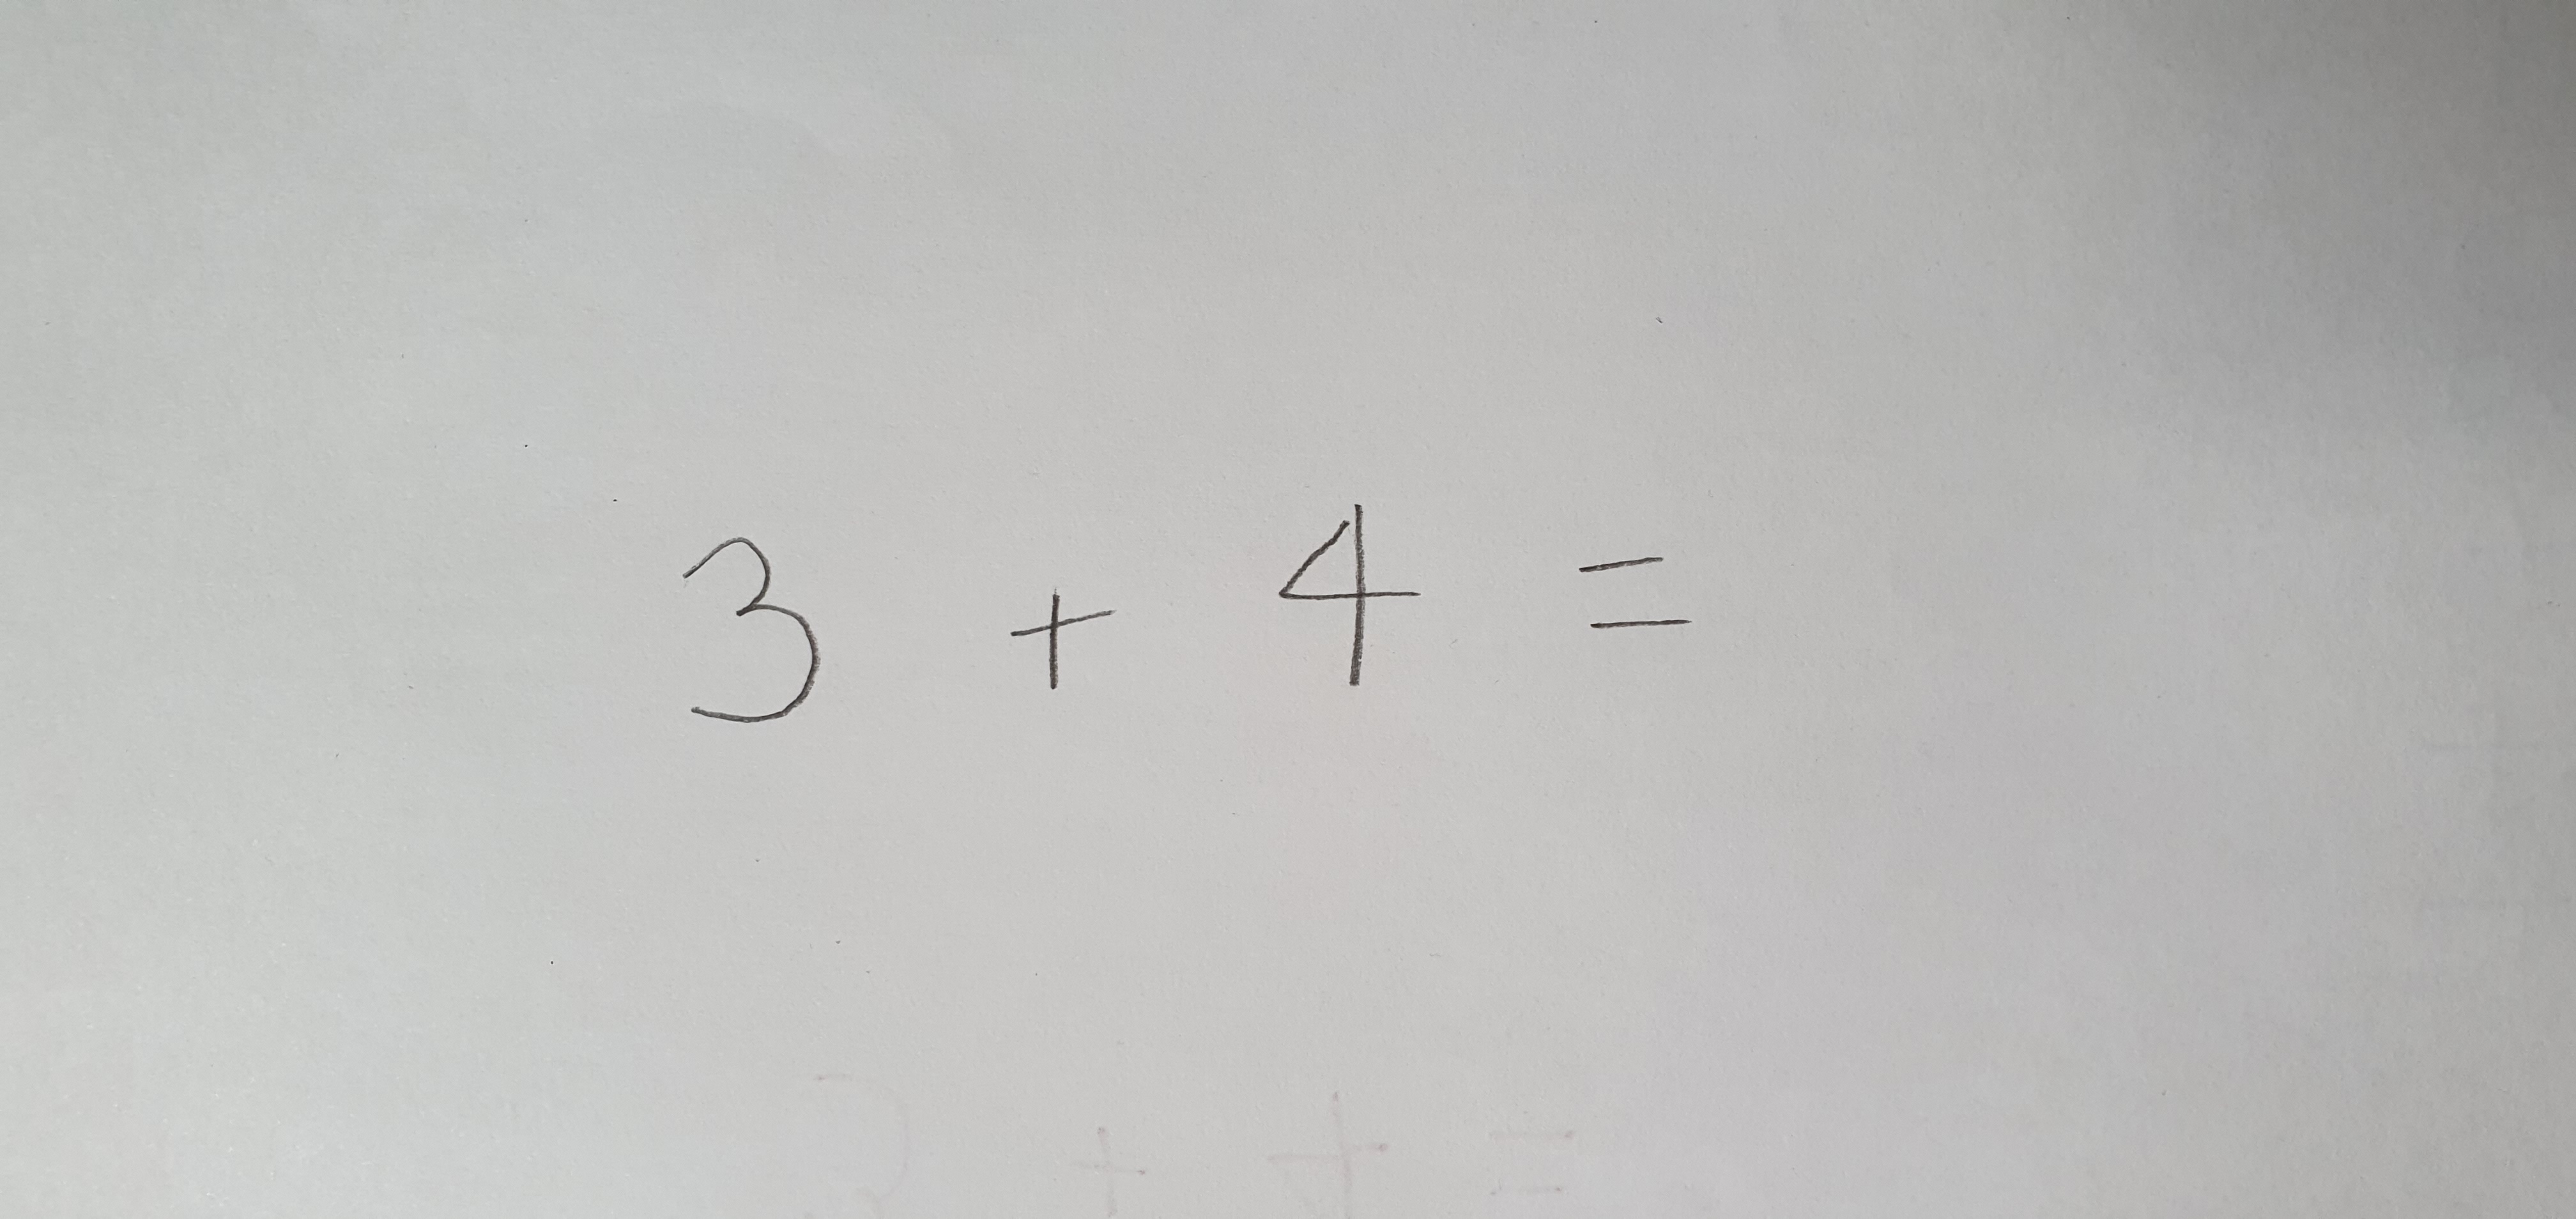 3 + 4 =